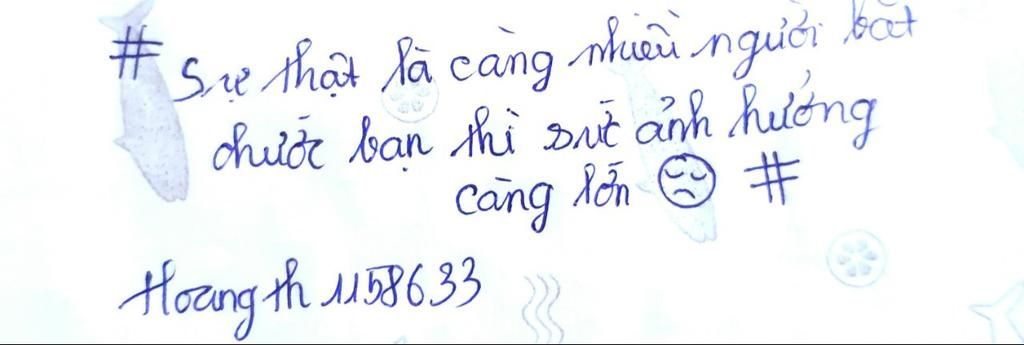 # Sự thật là càng nhiều người bắt
chước bạn thì sức ảnh hưởng
càng lớn #
Hoangth1158633